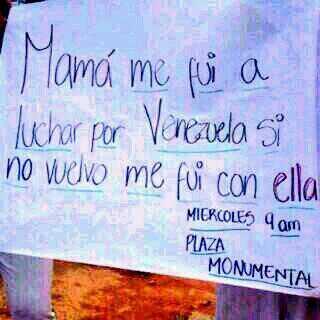 Mamá me fui a
luchar por Venezuela si
no vuelvo me fui con ella
MIERCOLES 9 am
PLAZA
MONUMENTAL